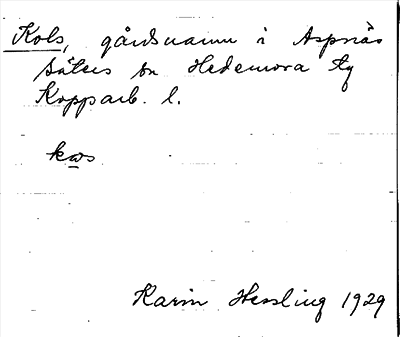 Kols, gårdsnamn i Aspnäs
Säters sn Hedemora tg
Kopparb. l.
kɷs
Karin Hessling 1929